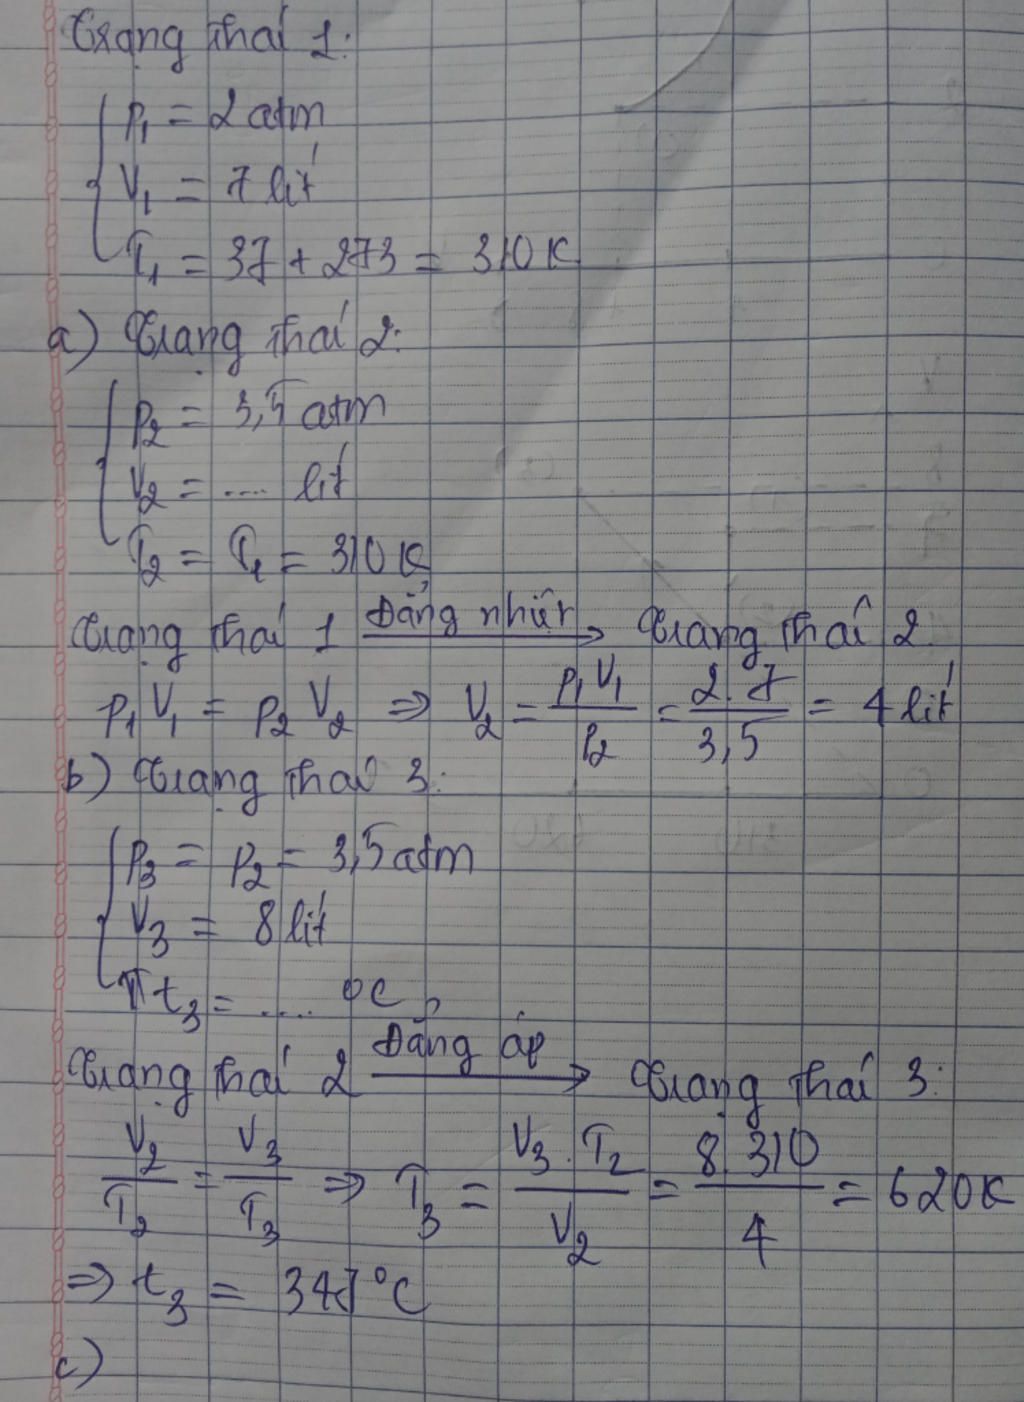 Trạng thái 1:
p₁ = 2 atm
V₁ = 7 lít
T₁ = 37 + 273 = 310 K
a) Trạng thái 2:
p₂ = 3,5 atm
V₂ = .... lít
T₂ = T₁ = 310 K
Trạng thái 1 Đẳng nhiệt → Trạng thái 2
p₁ V₁ = p₂ V₂ => V₂ = p₁ V₁ / p₂ = 2.7 / 3,5 = 4 lít
b) Trạng thái 3:
p₃ = p₂ = 3,5 atm
V₃ = 8 lít
t₃ = .... °C
Trạng thái 2 Đẳng áp → Trạng thái 3:
V₂ / T₂ = V₃ / T₃ => T₃ = V₃ . T₂ / V₂ = 8.310 / 4 = 620 K
=> t₃ = 347°C
c)